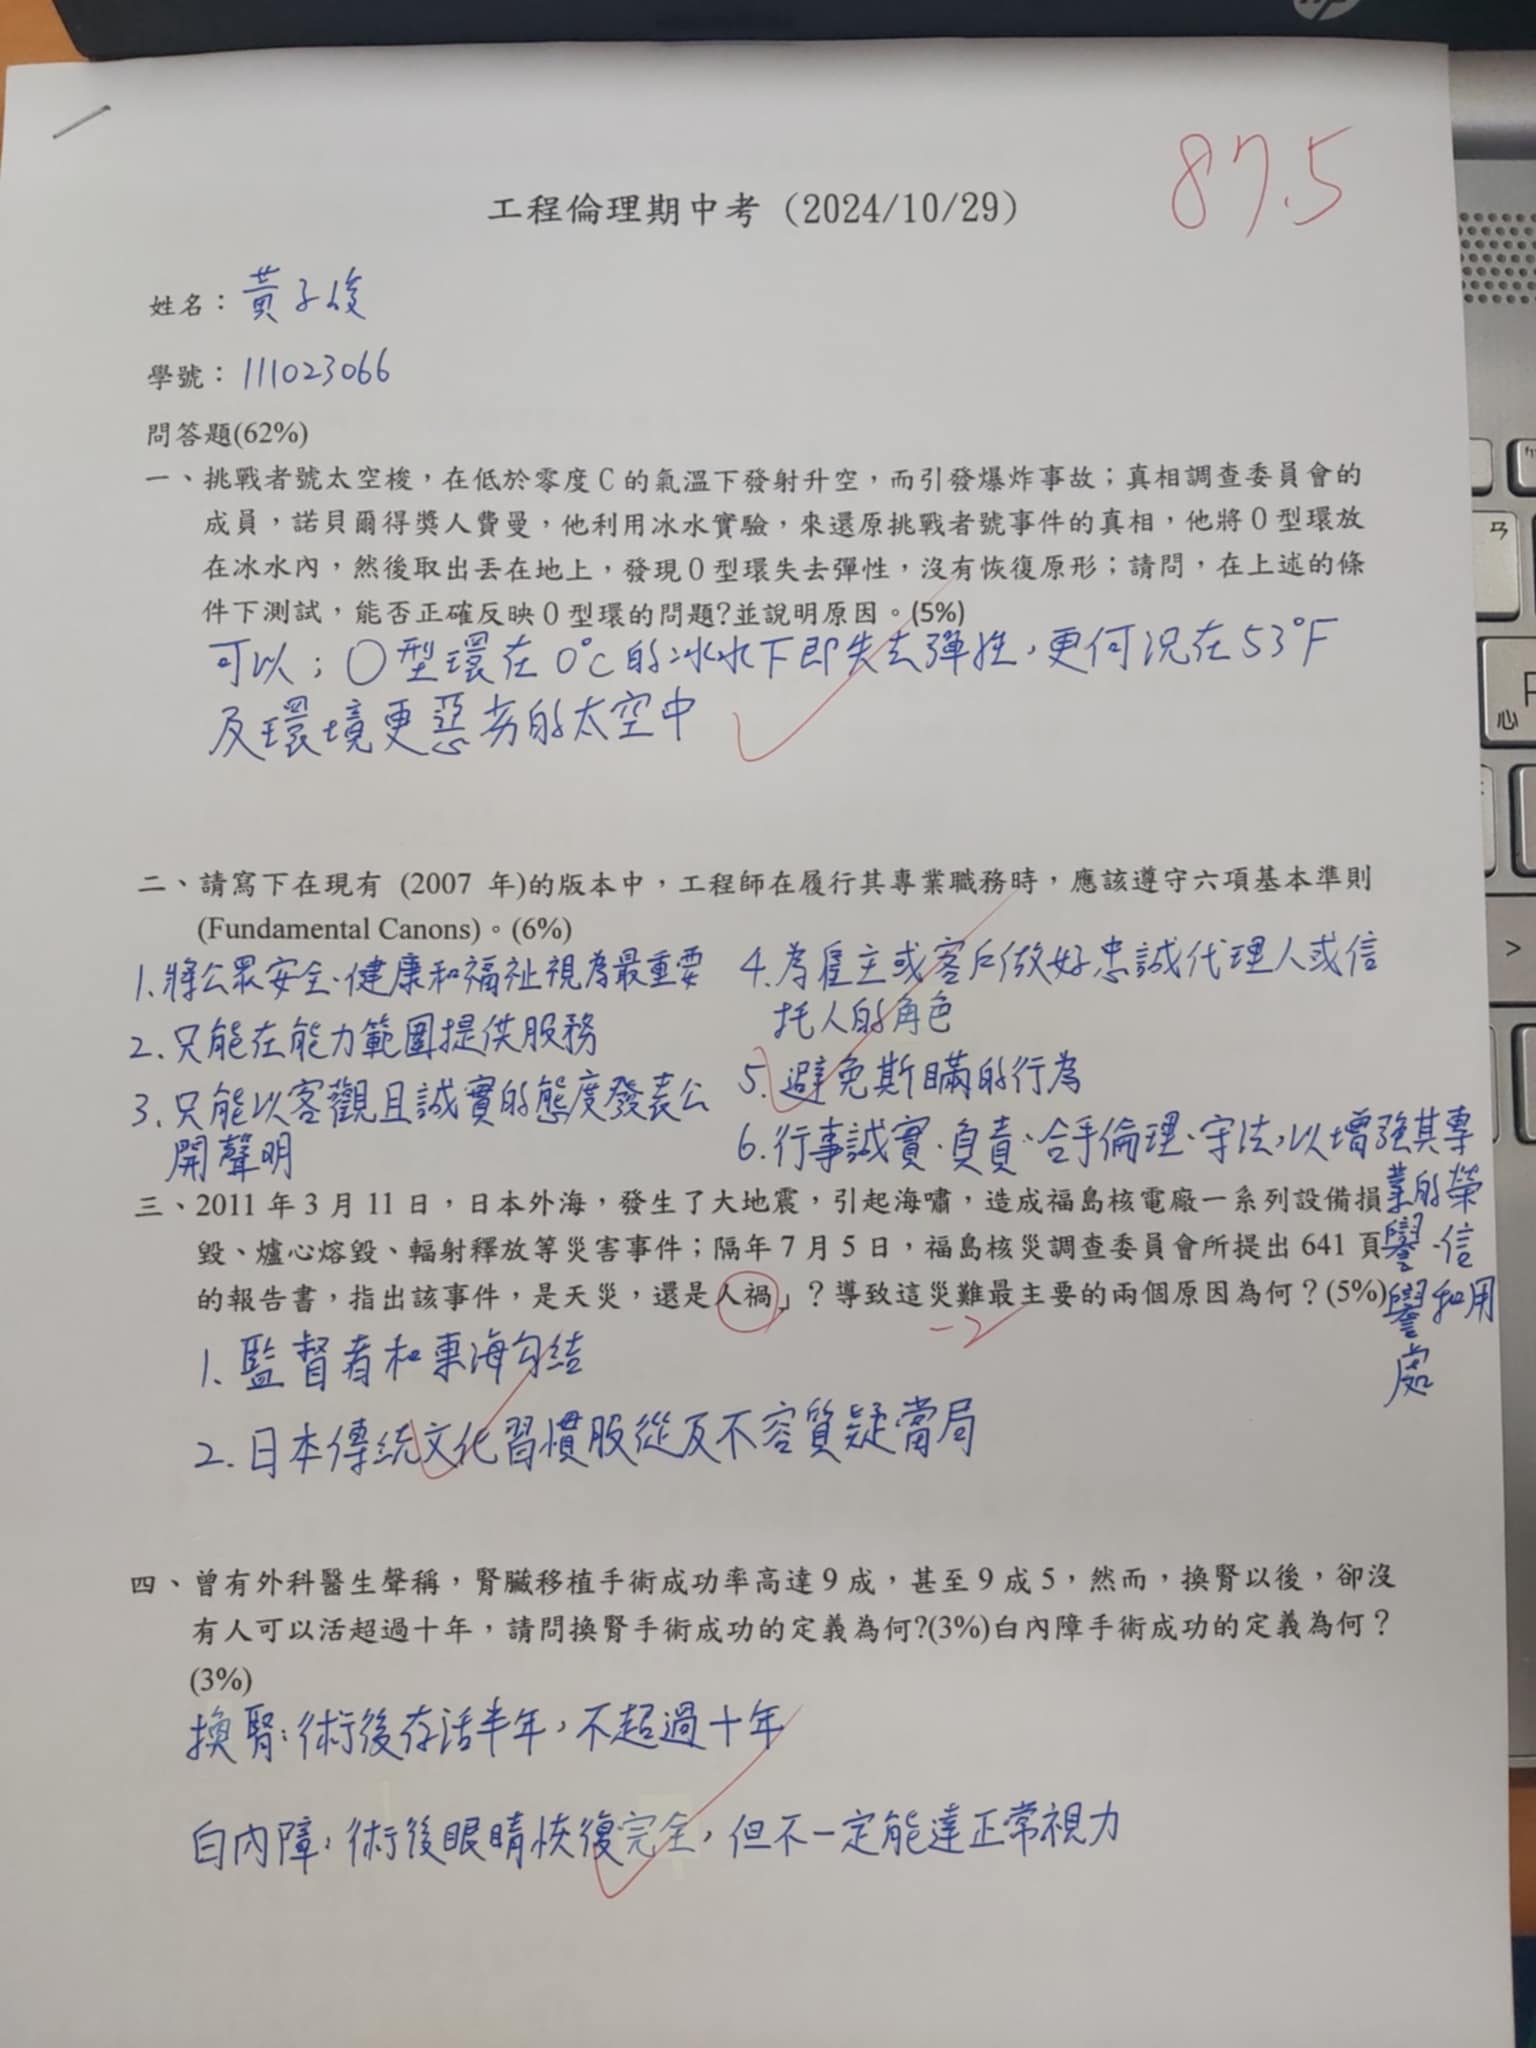 工程倫理期中考 (2024/10/29)
87.5
姓名：黃子俊
學號：111023066
問答題(62%)
一、挑戰者號太空梭，在低於零度C的氣溫下發射升空，而引發爆炸事故；真相調查委員會的
成員，諾貝爾得獎人費曼，他利用冰水實驗，來還原挑戰者號事件的真相，他將O型環放
在冰水內，然後取出丟在地上，發現O型環失去彈性，沒有恢復原形；請問，在上述的條
件下測試，能否正確反映O型環的問題?並說明原因。(5%)
可以；O型環在0°C的冰水下即失去彈性，更何況在53°F
及環境更惡劣的太空中
二、請寫下在現有 (2007 年)的版本中，工程師在履行其專業職務時，應該遵守六項基本準則
(Fundamental Canons)。(6%)
1.將公眾安全、健康和福祉視為最重要
2.只能在能力範圍提供服務
3.只能以客觀且誠實的態度發表公
開聲明
4.為雇主或客戶做好忠誠代理人或信
托人的角色
5.避免斯瞞的行為
6.行事誠實、負責、合乎倫理、守法，以增強其專
業的榮
譽、信
譽和用
處
三、2011年3月11日，日本外海，發生了大地震，引起海嘯，造成福島核電廠一系列設備損
毀、爐心熔毀、輻射釋放等災害事件；隔年7月5日，福島核災調查委員會所提出641頁
的報告書，指出該事件，是天災，還是人禍」？導致這災難最主要的兩個原因為何？(5%)
-2
1.監督者和東海勾結
2.日本傳統文化習慣服從及不容質疑當局
四、曾有外科醫生聲稱，腎臟移植手術成功率高達9成，甚至9成5，然而，換腎以後，卻沒
有人可以活超過十年，請問換腎手術成功的定義為何?(3%)白內障手術成功的定義為何？
(3%)
換腎：術後存活半年，不超過十年
白內障：術後眼睛恢復完全，但不一定能達正常視力